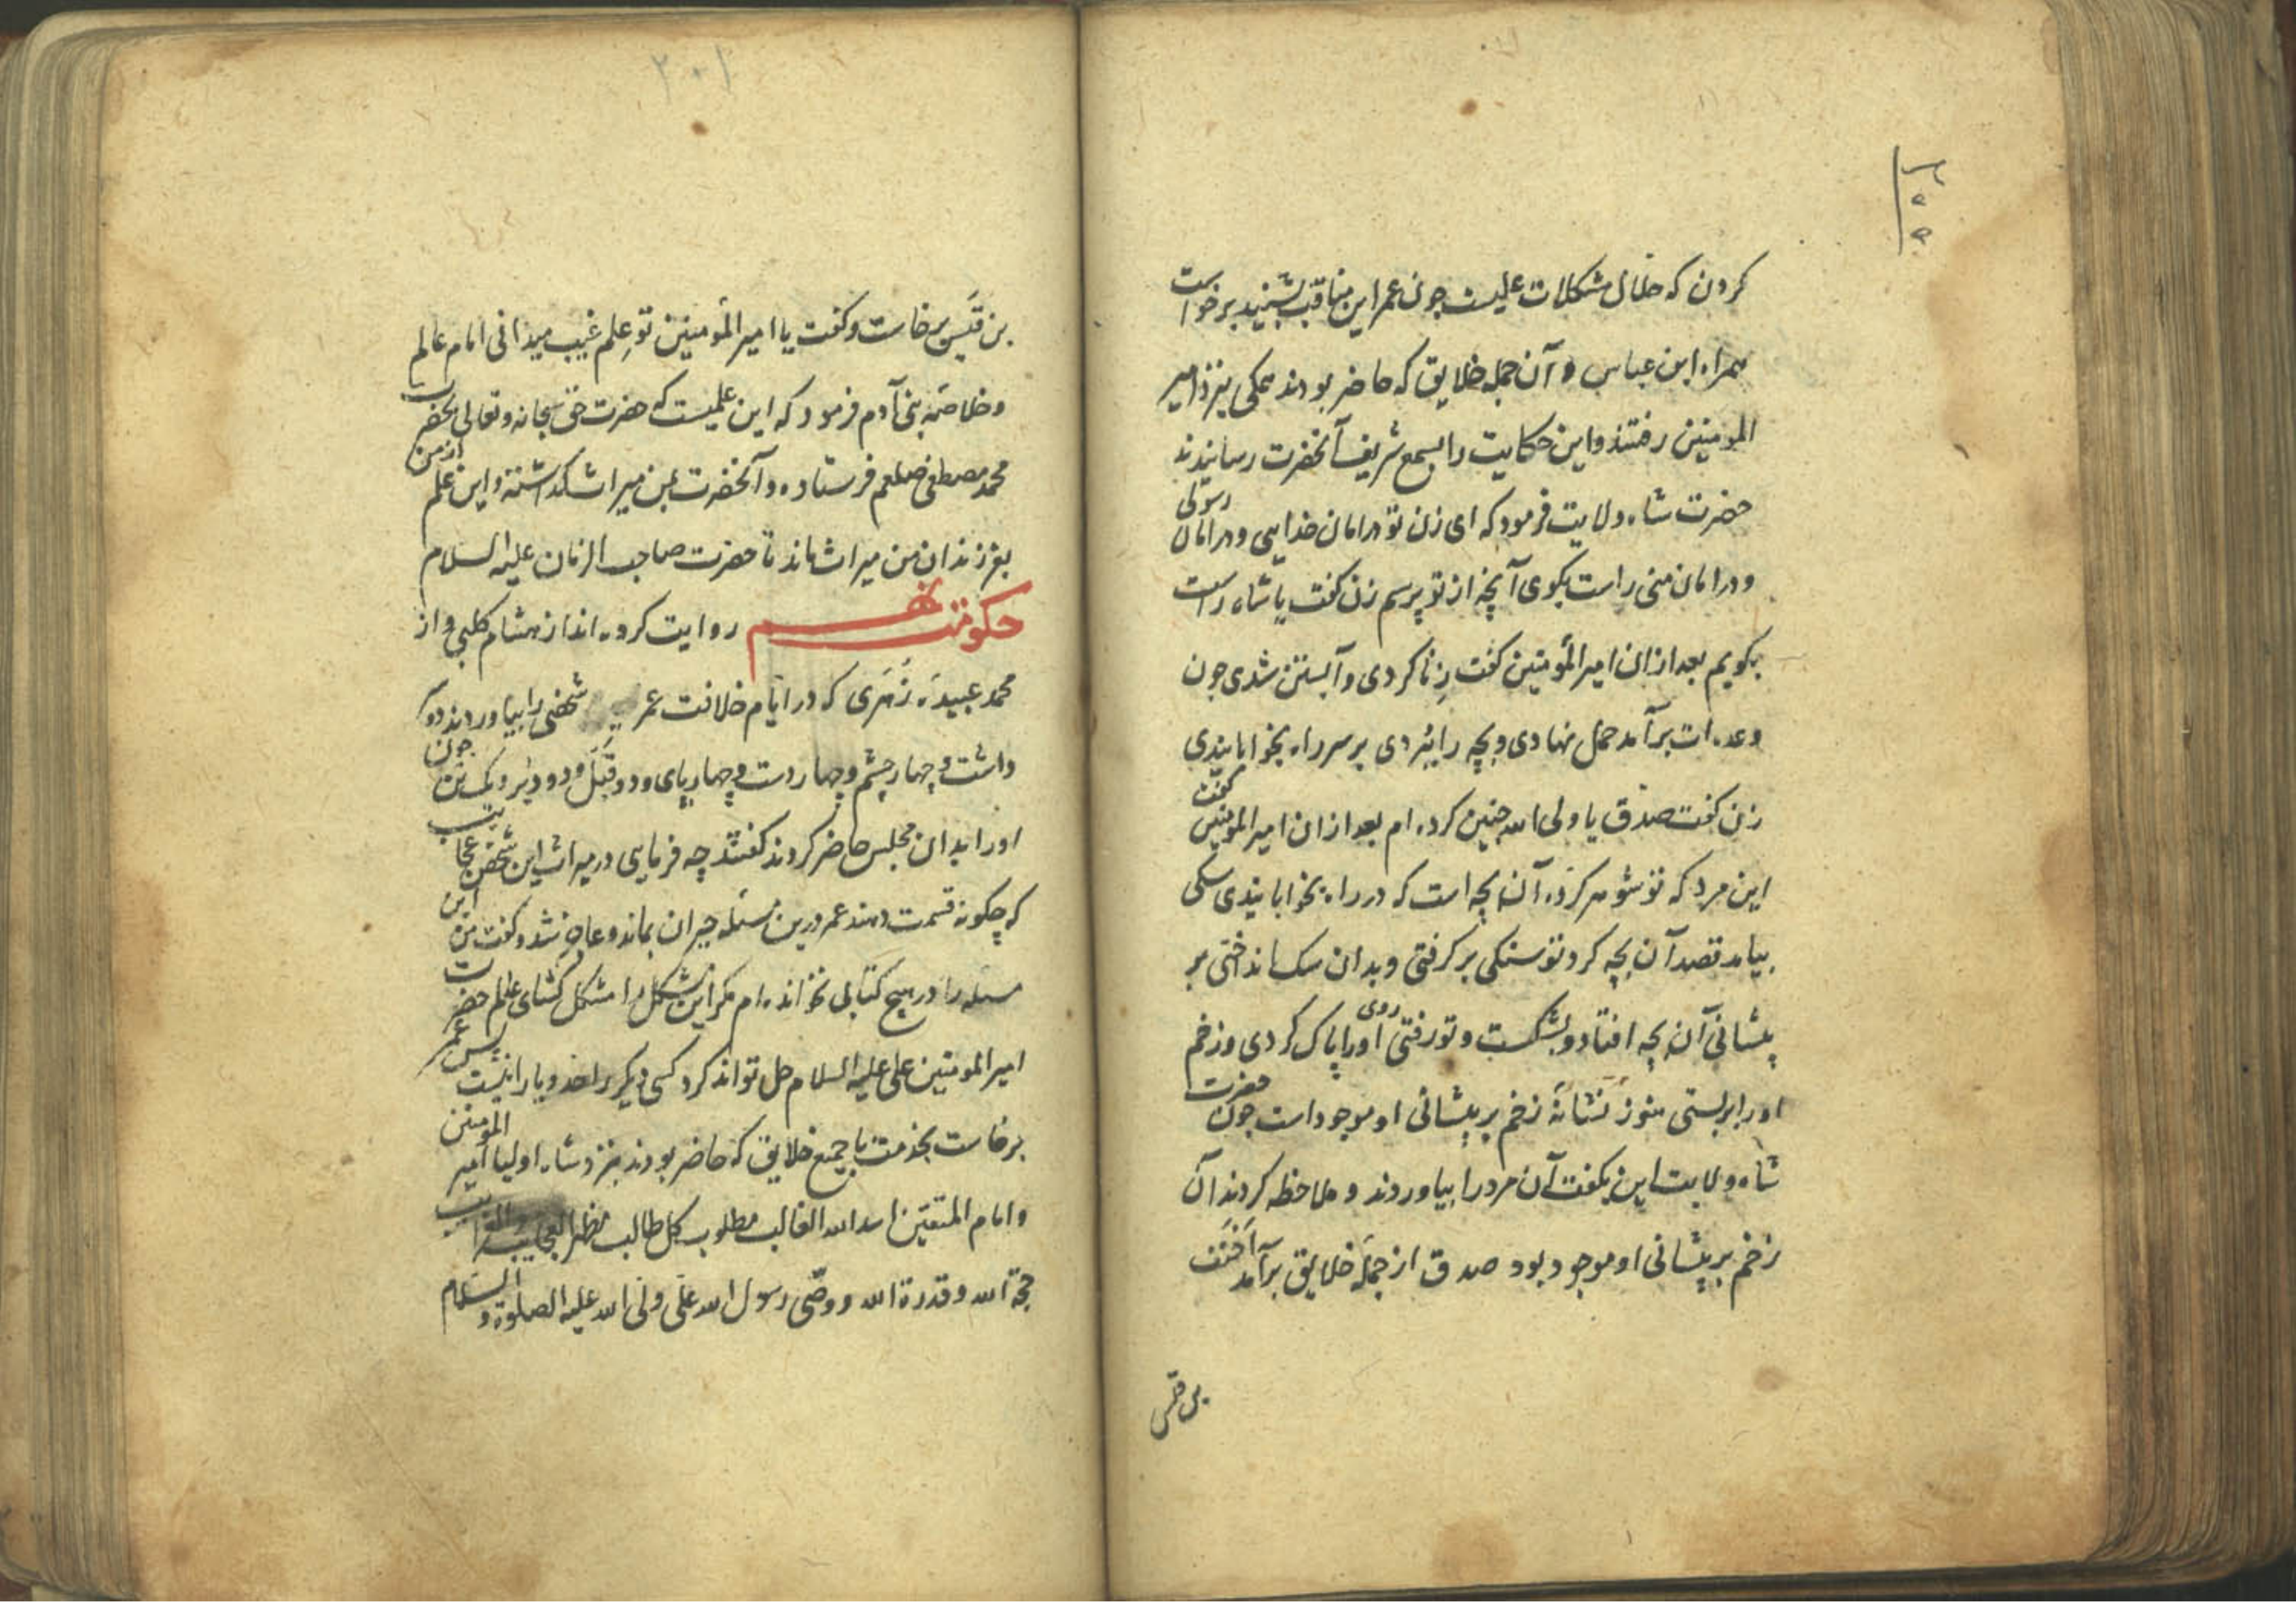 کردن که حلال مشکلات علیست چون عمر این مناقب بشنید برخواست
همراه ابن عباس و آن جمله خلایق که حاضر بودند همکی بنزد امیر
المومنین رفتند و این حکایت را بسمع شریف آنحضرت رسانیدند
حضرت شاه ولایت فرمود که ای زن تو در امان خدایی و در امان رسولی
و در امان منی راست بکوی آنچه از تو پرسم زن کفت یا شاه راست
بکویم بعد ازان امیر المؤمنین کفت زنا کردی و آبستن شدی چون
وعده ات برآمد حمل نهادی و بچه را ببردی بر سر راه بخوابانیدی
زن کفت صدق یا ولی الله چنین کرده ام بعد ازان امیر المومنین کفت
این مرد که تو شوهر کرده آن بچه است که در راه بخوابانیدی سکی
بیامد قصد آن بچه کرد تو سنکی بر کرفتی و بدان سک انداختی بر
پیشانی آن بچه افتاد و بشکست و تو رفتی روی او را پاک کردی و زخم
او را بربستی هنوز نشانهٔ زخم بر پیشانی او موجود است چون حضرت
شاه ولایت این بکفت آن مرد را بیاوردند و ملاحظه کردند آن
زخم بر پیشانی او موجود بود صدق از جمله خلایق برآمد احنف
بن قیس
۲۰۱
بن قیس برخاست و کفت یا امیر المؤمنین تو علم غیب میدانی امام عالم
و خلاصهٔ بنی آدم فرمود که این علمیست که حضرت حق سبحانه و تعالی بحضرت
محمد مصطفی صلعم فرستاده و آنحضرت بمن میراث کذاشته و این علم از من
بفرزندان من میراث ماند تا حضرت صاحب الزمان علیه السلام
حکومت نهم روایت کرده اند از هشام کلبی و از
محمد عبیده زهری که در ایام خلافت عمر شخصی را بیاوردند دو
داشت و چهار چشم و چهار دست و چهار پای و دو قبل و دو دبر و یک تن چون
او را بدان مجلس حاضر کردند کفتند چه فرمایی در میراث این شخص عجایب
که چکونه قسمت دهند عمر درین مسئله حیران بماند و عاجز شد و کفت من این
مسئله را در هیچ کتابی نخوانده ام مکر این مشکل را مشکل کشای عالم حضرت
امیر المومنین علی علیه السلام حل تواند کرد کسی دیکر را حد و یارا نیست پس عمر
برخاست بخدمت با جمیع خلایق که حاضر بودند بنزد شاه اولیا امیر المومنین
و امام المتقین اسد الله الغالب مطلوب کل طالب مظهر العجایب
حجة الله و قدرة الله و وصّی رسول الله علی ولی الله علیه الصلوة و السلام